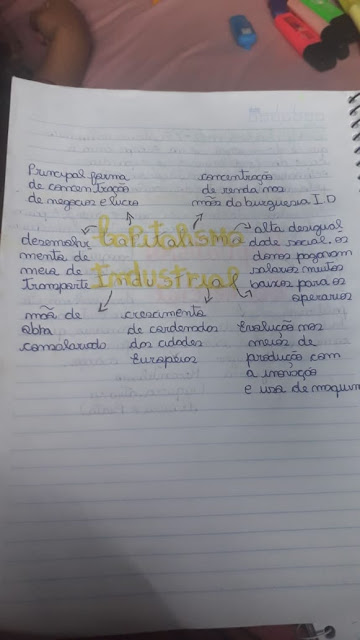 Principal forma
de concentração
de negocios e lucro
concentração
de renda nas
mãos da burguesia I.D
Capitalismo
Industrial
desemvolvi
mento de
meios de
Transporte
alta desigual
dade social. os
donos pagavam
salarios muitos
baixos para os
operarios
mãos de
obra
crescimento
de
dos cidades
Européios
Evolução nos
meios de
produção com
a inovação
e uso de maquin